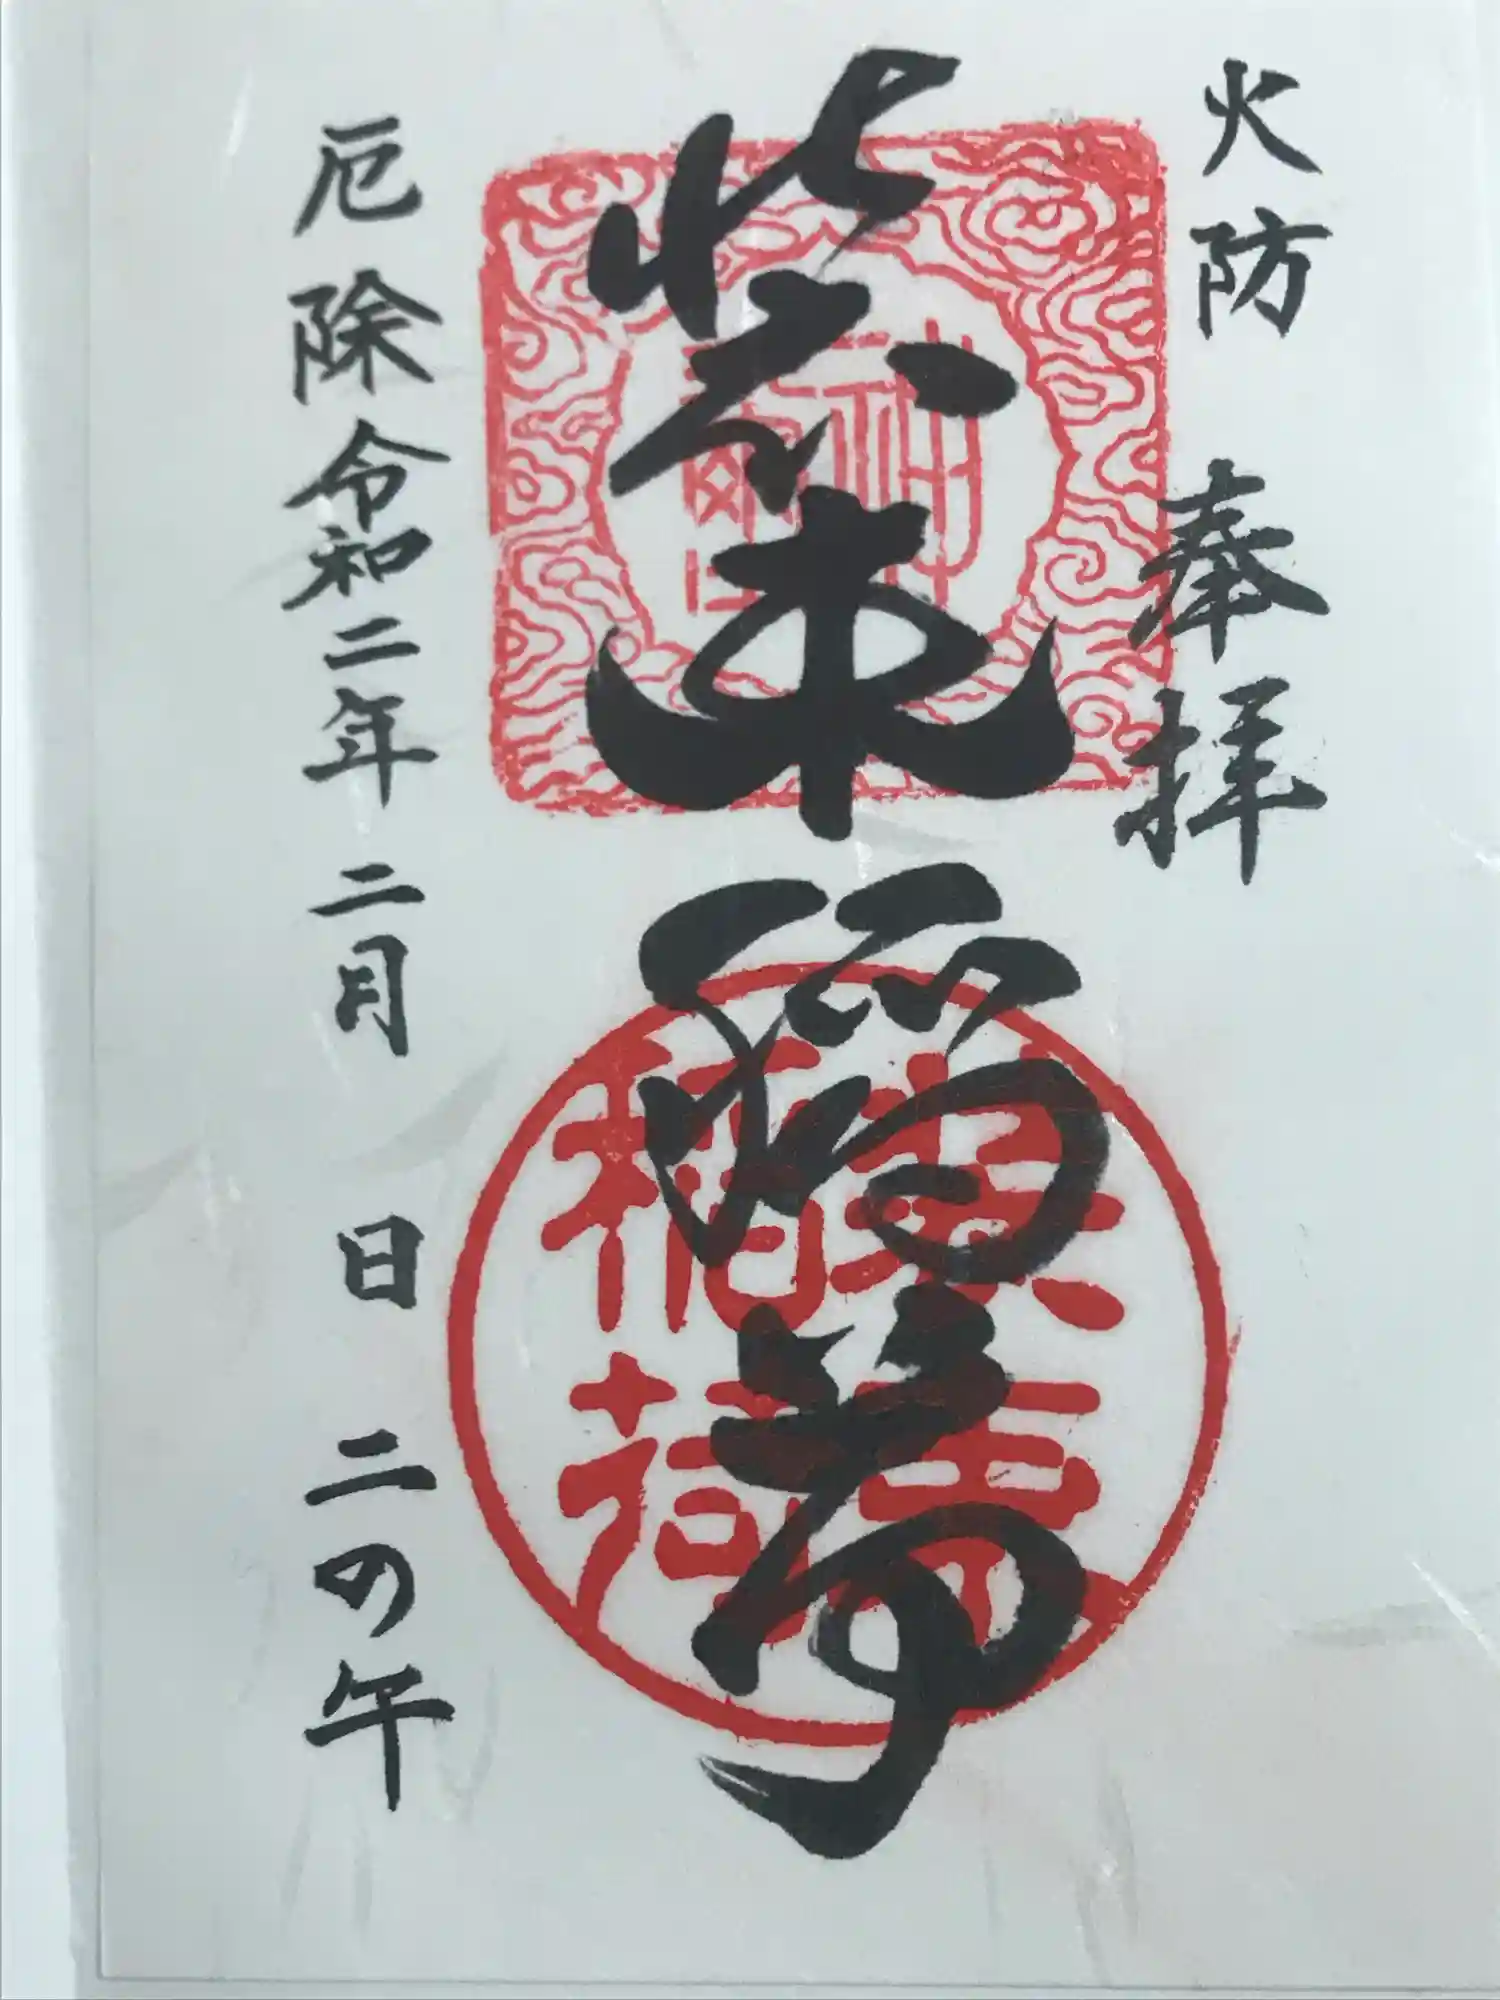 火防 奉拝
装束稲荷
厄除 令和二年 二月 日 二の午
装束
稲荷